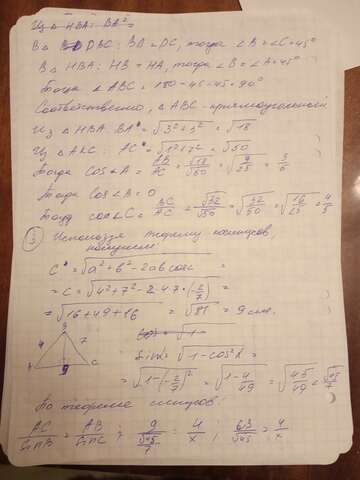 Из △ HBA: BA² =
В △ BDC: BD = DC, тогда ∠B = ∠C = 45°
В △ HBA: HB = HA, тогда ∠B = ∠A = 45°
Тогда ∠ABC = 180 - 45 - 45 = 90°
Соответственно, △ ABC - прямоугольный
Из △ HBA: BA = √3² + 3² = √18
Из △ AKC: AC = √1² + 7² = √50
Тогда cos∠A = AB/AC = √18/√50 = √9/25 = 3/5
Тогда cos∠B = 0
Тогда cos∠C = BC/AC = √32/√50 = √32/50 = √16/25 = 4/5
3 Используя теорему косинусов,
получим
C = √a² + b² - 2ab cos c =
= C = √4² + 7² - 2·4·7·(-2/7) =
= √16 + 49 + 16 = √81 = 9 см.
B
4 7
A 9 C
cos = √1-
Sin = √1 - cos²α =
= √1-(-2/7)² = √1-4/49 = √45/49 = √45/7
По теореме синусов:
AC/sinB = AB/sinC ; 9/(√45/7) = 4/x ; 63/√45 = 4/x